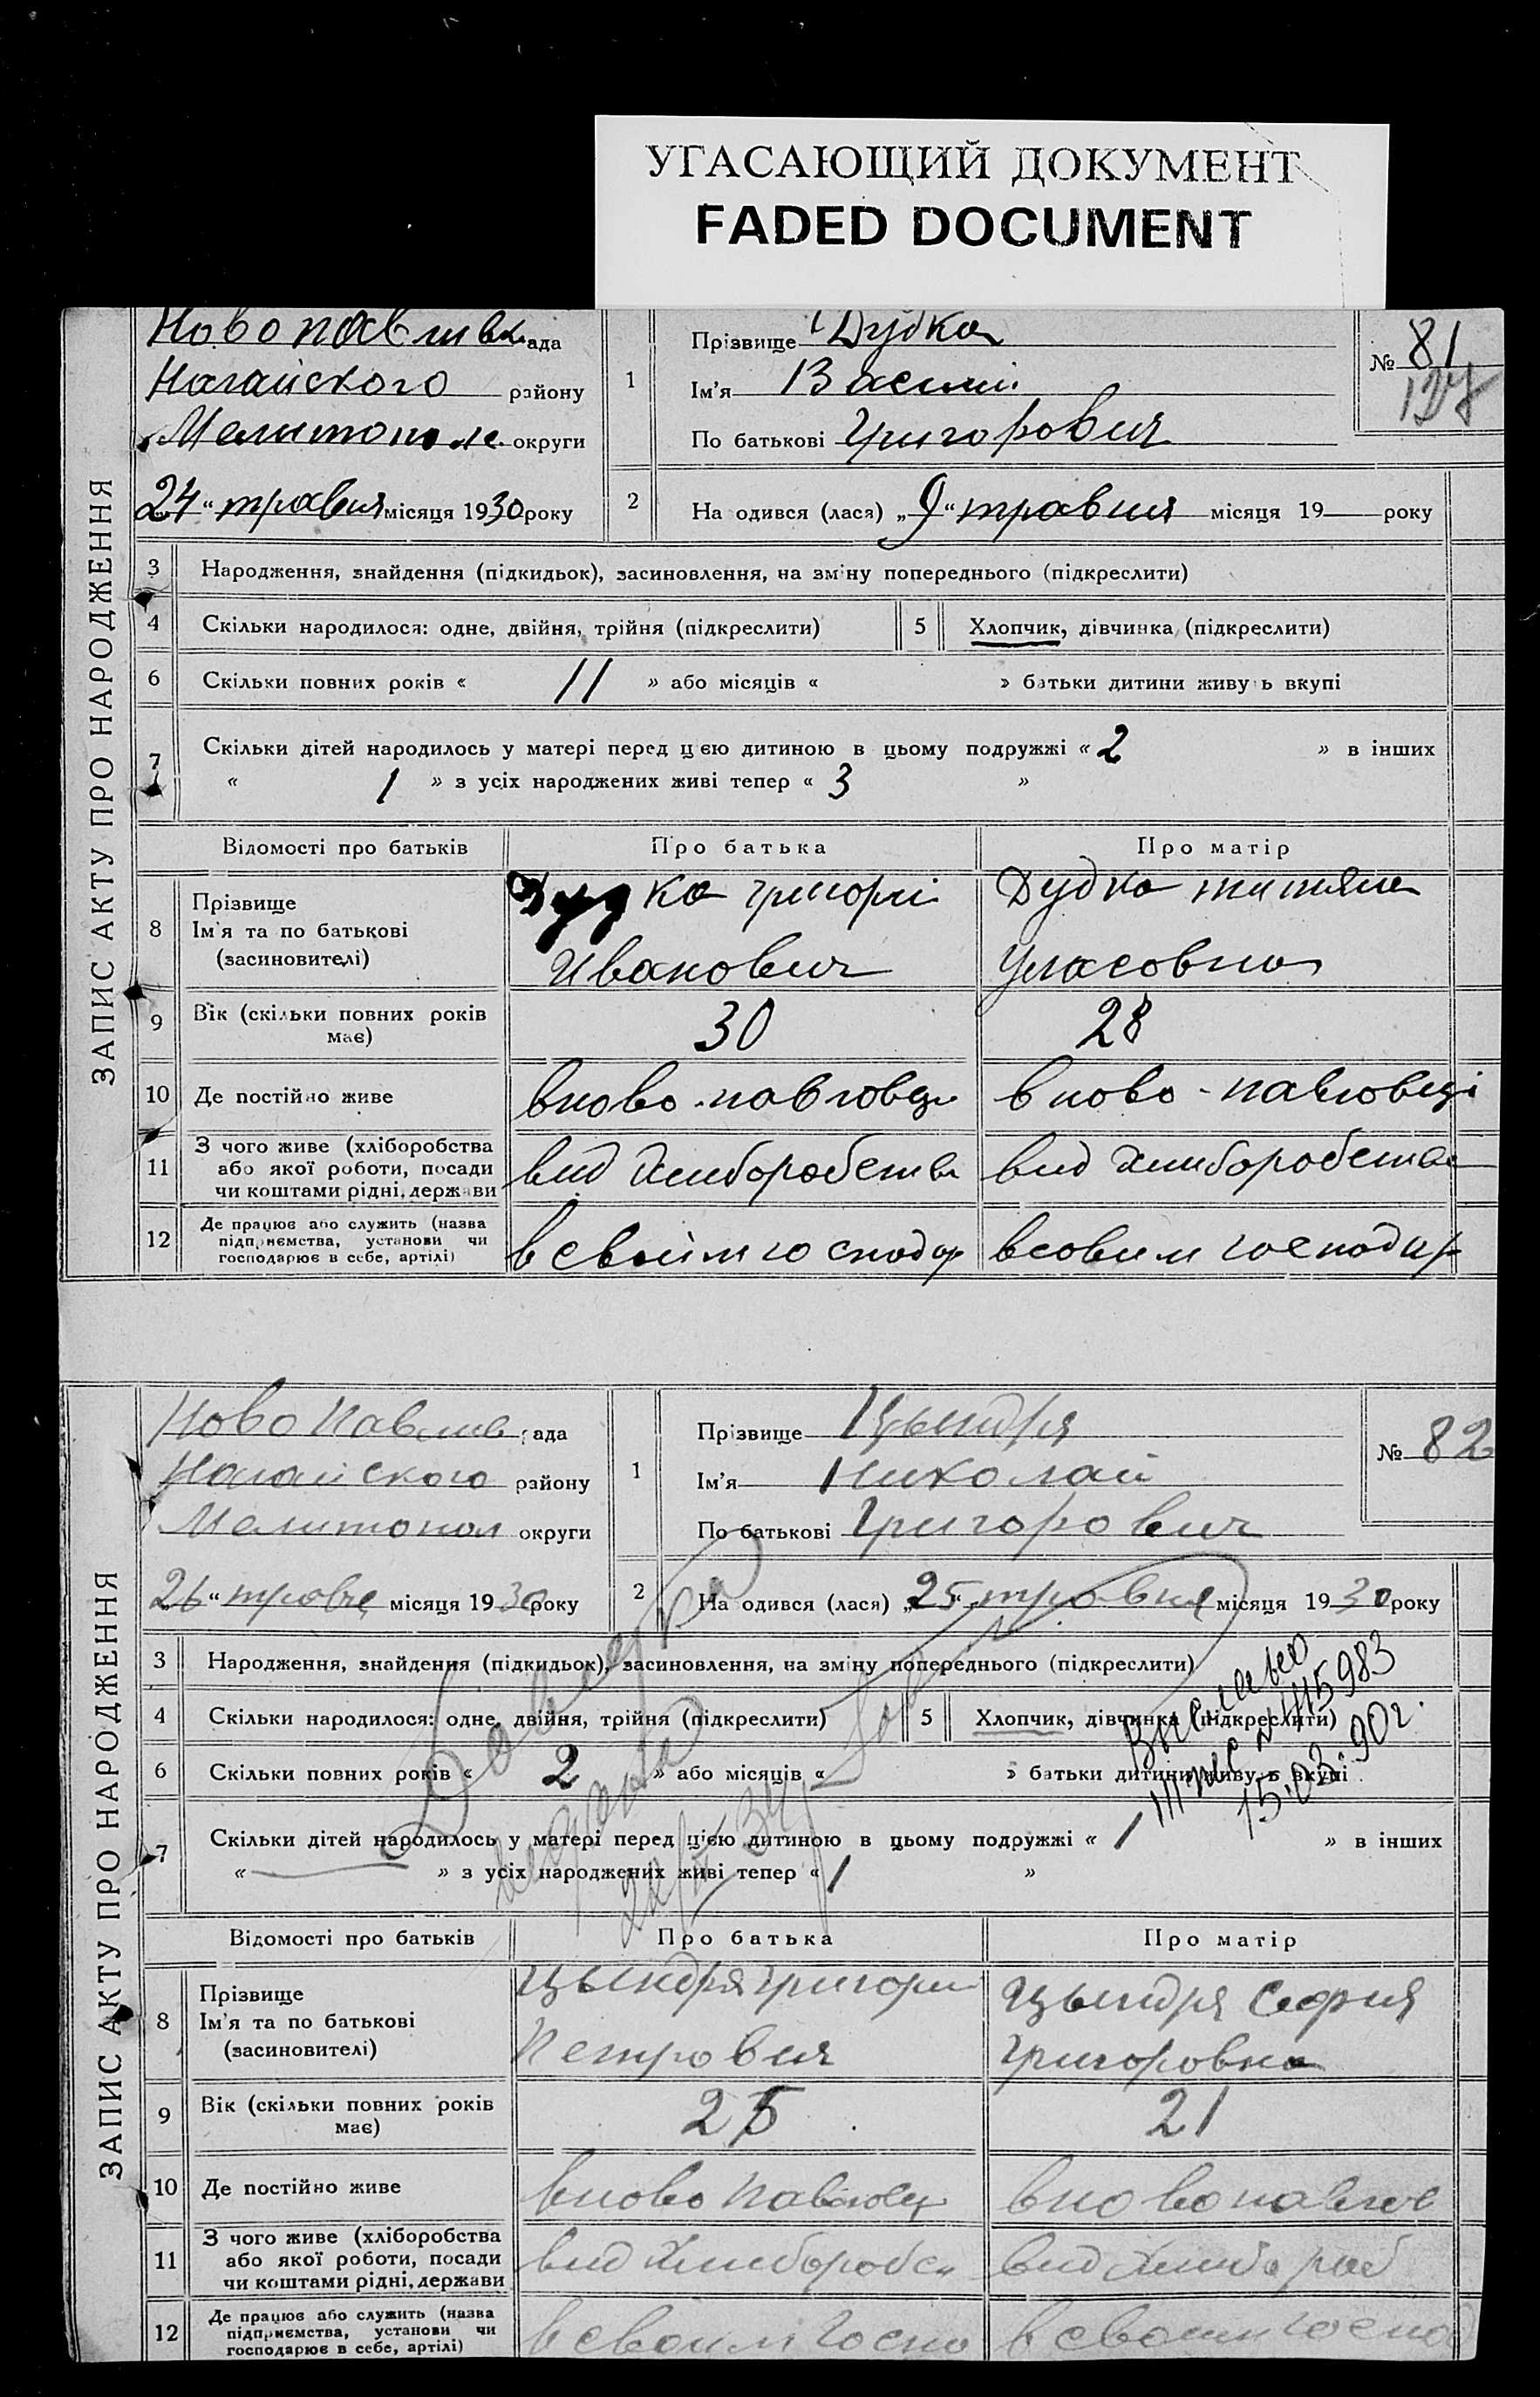 УГАСАЮЩИЙ ДОКУМЕНТ
FADED DOCUMENT
ЗАПИС АКТУ ПРО НАРОДЖЕННЯ
Новопавливк ада
Нагайского району
Мелитополе округи
24 " травня місяця 1930 року
1
Прізвище Дудка
Ім'я Василий
По батькові Григорович
№ 81
127
2
На одився (лася) „9" травния місяця 19 року
3 Народження, знайдення (підкидьок), засиновлення, на зміну попереднього (підкреслити)
4 Скільки народилося: одне, двійня, трійня (підкреслити) 5 Хлопчик, дівчинка (підкреслити)
6 Скільки повних років « 11 » або місяців « » батьки дитини живу ь вкупі
7 Скільки дітей народилось у матері перед цією дитиною в цьому подружжі « 2 » в інших
« 1 » з усіх народжених живі тепер « 3 »
Відомості про батьків Про батька Про матір
8 Прізвище
Ім'я та по батькові
(засиновителі)
Дудка Григорій
Иванович
Дудка Титяна
Уласовна
9 Вік (скільки повних років
має)
30 28
10 Де постійно живе вново-павловци вново-павловці
11 З чого живе (хліборобства
або якої роботи, посади
чи коштами рідні, держави
вид хлиборобства вид хлиборобства
12 Де працює або служить (назва
підприємства, установи чи
господарює в себе, артілі)
в своім господар всовим господар
ЗАПИС АКТУ ПРО НАРОДЖЕННЯ
Ново Павлив ада
Нагайского району
Мелитопол округи
26 " тровня місяця 1930 року
1
Прізвище Цындря
Ім'я Николай
По батькові Григорович
№ 82
2
На одився (лася) „25" травния місяця 1930 року
3 Народження, знайдення (підкидьок), засиновлення, на зміну попереднього (підкреслити)
4 Скільки народилося: одне, двійня, трійня (підкреслити) 5 Хлопчик, дівчинка (підкреслити)
6 Скільки повних років « 2 » або місяців « » батьки дитини живу ь вкупі
7 Скільки дітей народилось у матері перед цією дитиною в цьому подружжі « 1 » в інших
« » з усіх народжених живі тепер « 1 »
15.03.90г.
Відомості про батьків Про батька Про матір
8 Прізвище
Ім'я та по батькові
(засиновителі)
Цындря Григорий
Петрович
Цындря София
Григоровна
9 Вік (скільки повних років
має)
25 21
10 Де постійно живе вново Павловц вновопавлов
11 З чого живе (хліборобства
або якої роботи, посади
чи коштами рідні, держави
вид хлиборобс вид хлибороб
12 Де працює або служить (назва
підприємства, установи чи
господарює в себе, артілі)
в своим госпо в своим господ